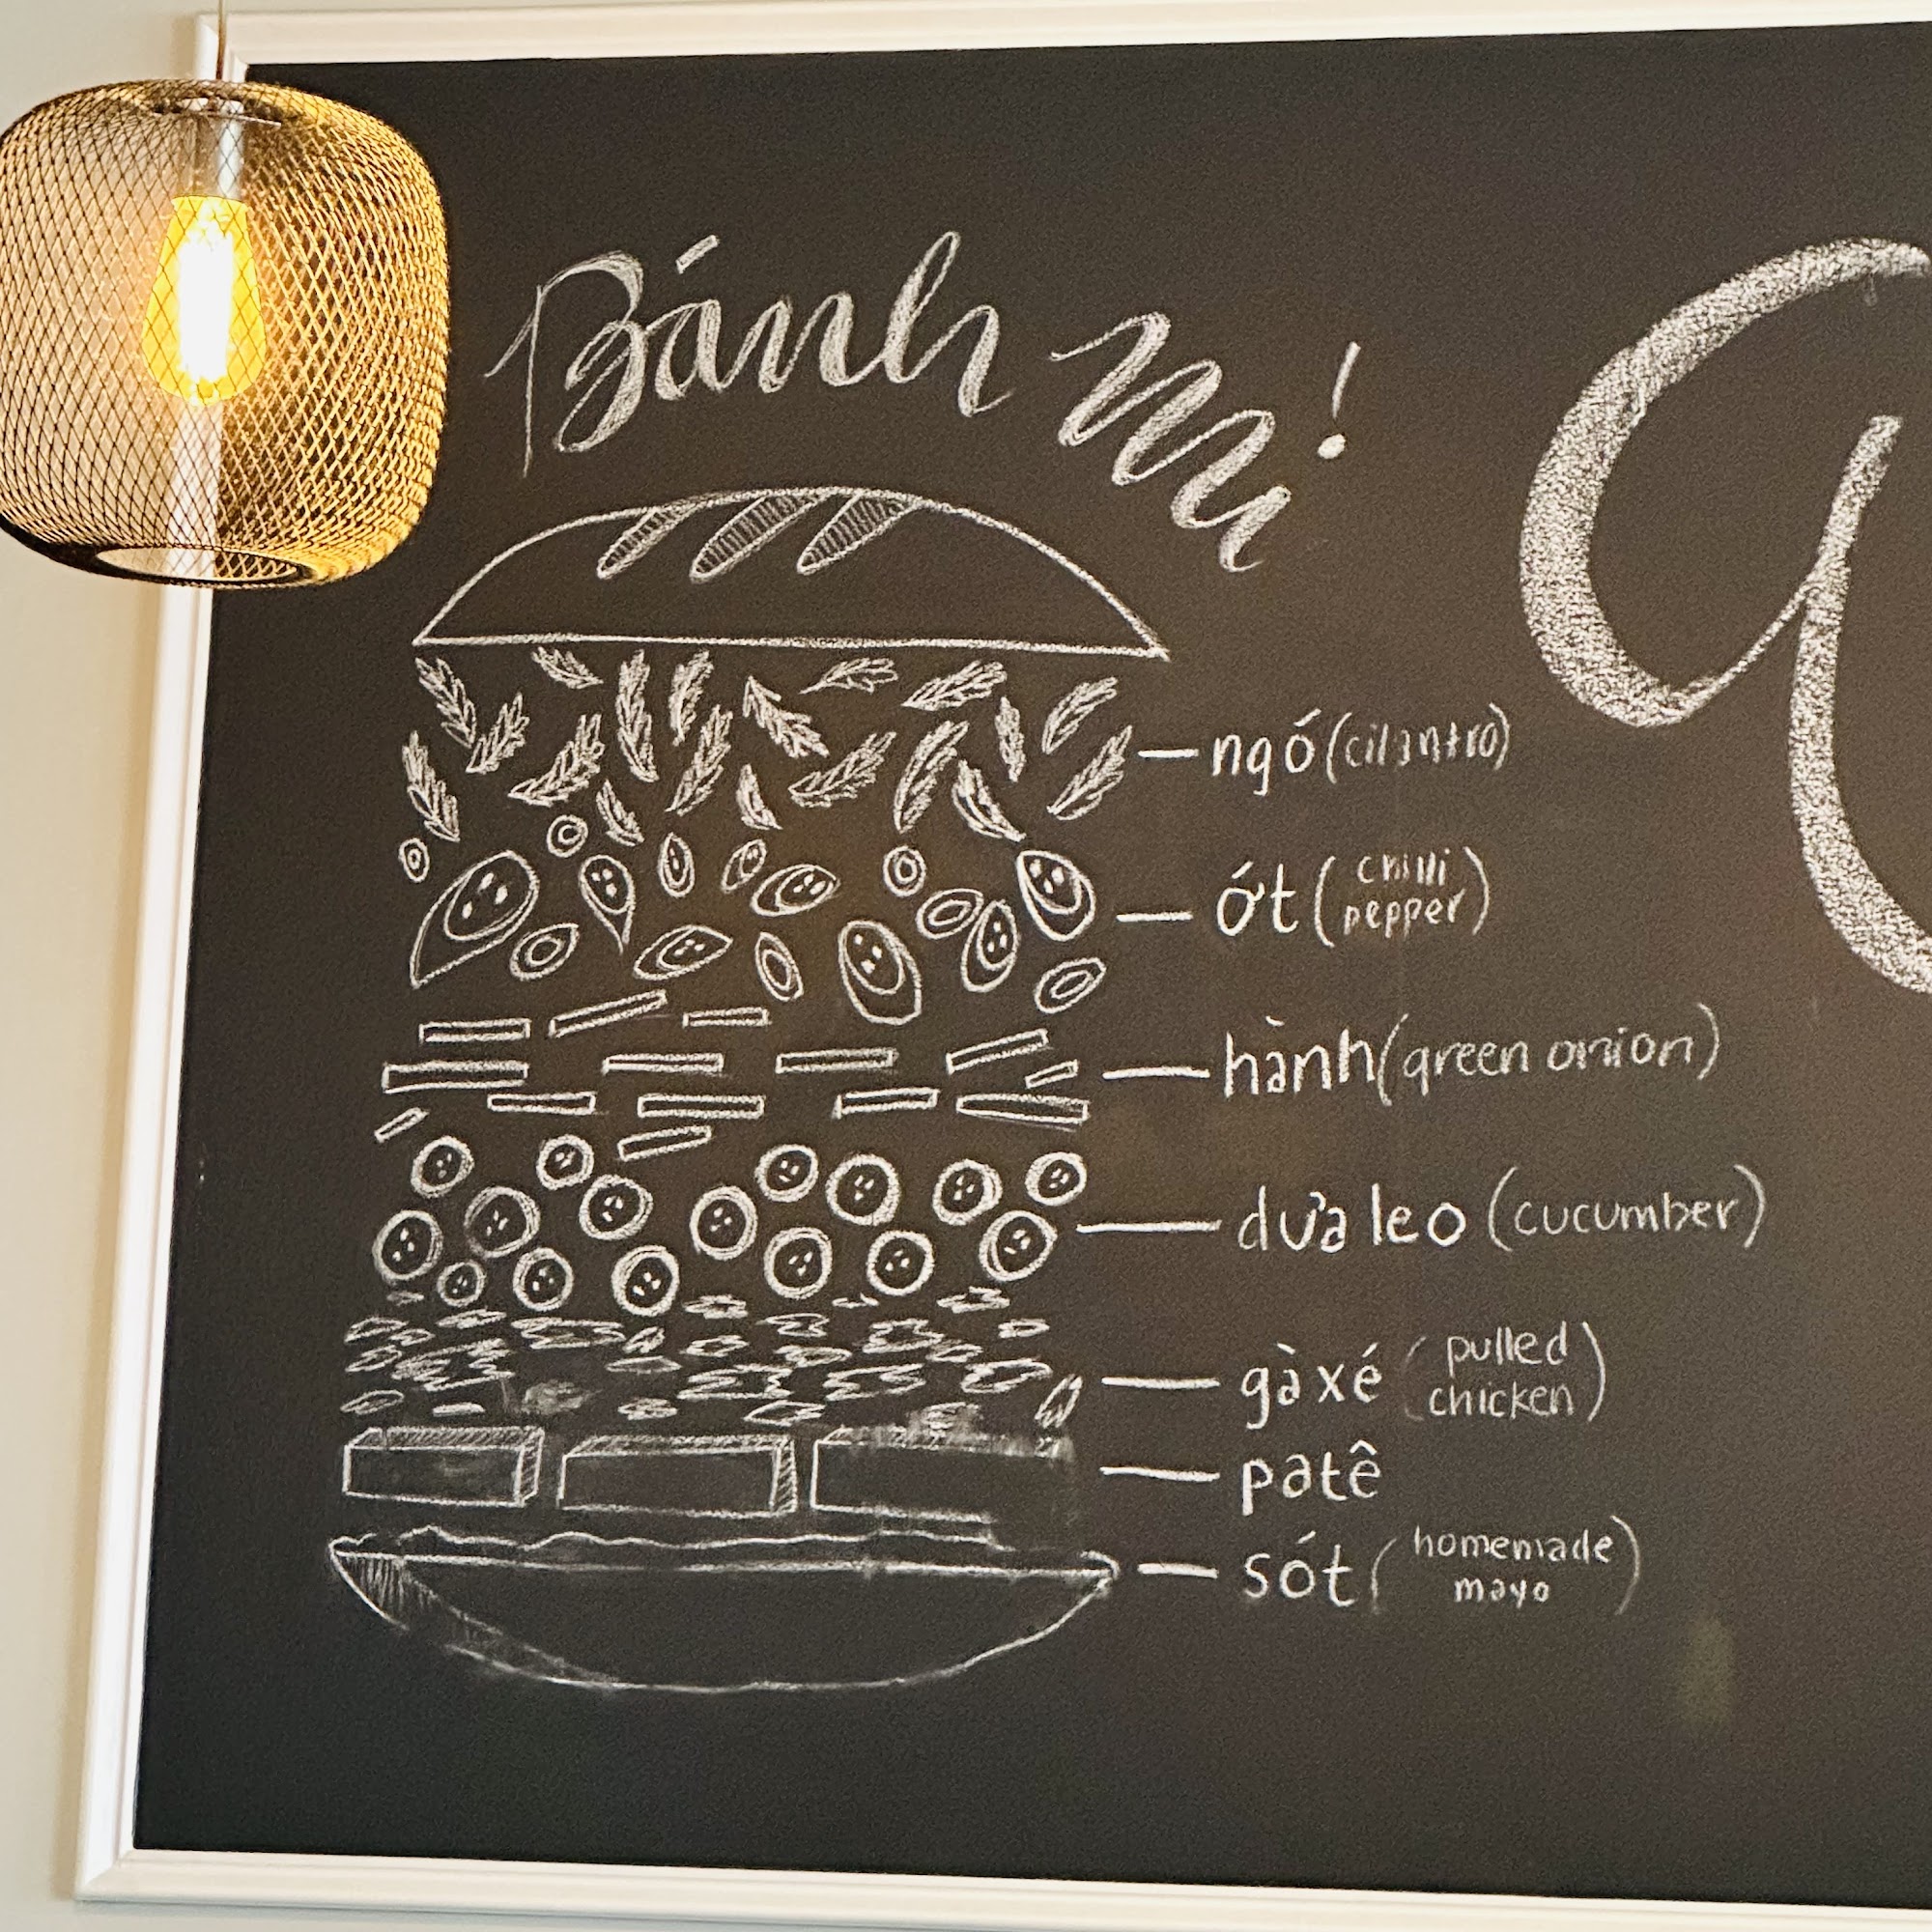 Bánh mi!
ngó (cilantro)
ớt (chilli
pepper)
hành (green onion)
dưa leo (cucumber)
gà xé (pulled
chicken)
patê
sót (homemade
mayo)